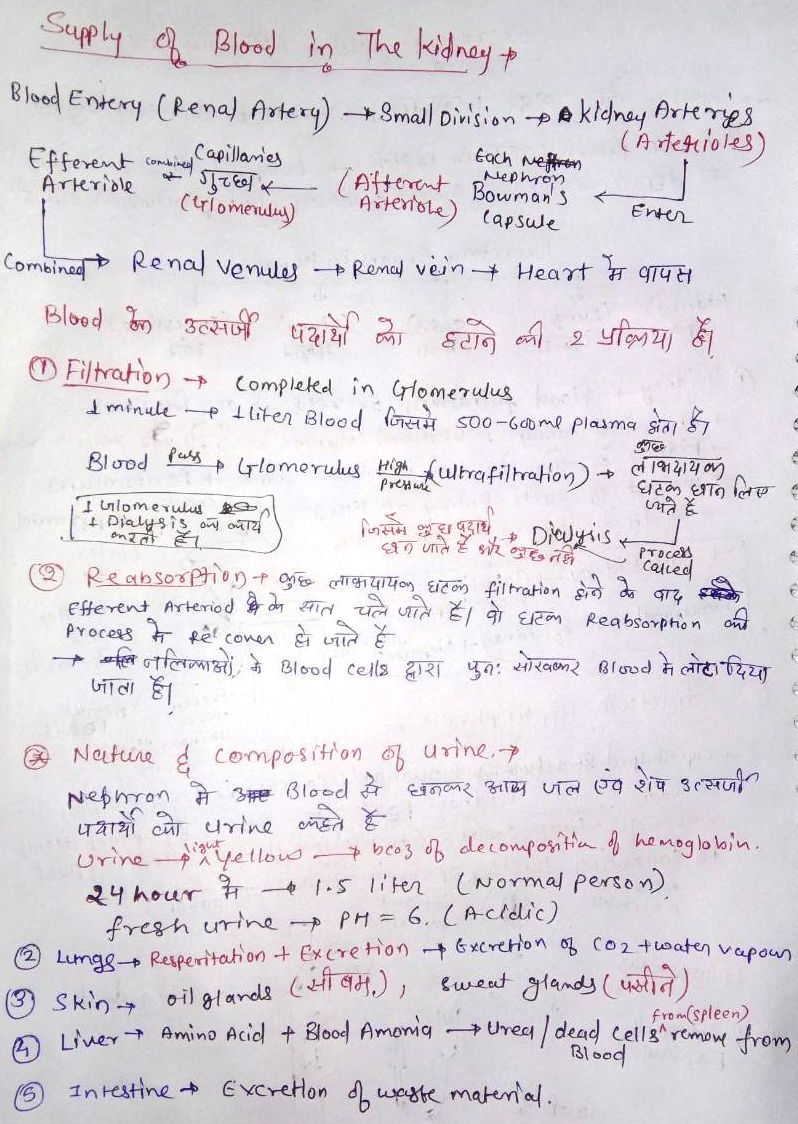 Supply of Blood in The kidney →
Blood Entery (Renal Artery) → Small Division → kidney Arteries
(Arterioles)
Efferent Arteriole ← combined Capillaries गुच्छा (Glomerulus) ← (Afferent Arteriole) Each Nephron Bowman's capsule ← Enter
Combined → Renal Venules → Renal vein → Heart में वापस
Blood के उत्सर्जी पदार्थों को हटाने की 2 प्रक्रिया हैं।
① Filtration → Completed in Glomerulus
1 minute → 1 liter Blood जिसमे 500-600ml plasma होता है।
Blood Pass → Glomerulus High Pressure → (Ultrafiltration) → कुछ लाभदायक घटक छान लिए जाते हैं
1 Glomerulus
1 Dialysis का कार्य करता है।
जिसमे कुछ पदार्थ छन जाते हैं और कुछ नहीं → Dialysis ← Process called
② Reabsorption → कुछ लाभदायक घटक filtration होने के बाद
Efferent Arteriod के सात चले जाते हैं। वो घटक Reabsorption की
Process मे Recover हो जाते हैं
→ नलिकाओं, के Blood cells द्वारा पुन: सोखकर Blood मे लोटा दिया
जाता है।
Nature & composition of urine. →
Nephron में Blood से छनकर आय जल एंव शेष उत्सर्जी
पदार्थों को urine कहते हैं
Urine → light yellow → bcoz of decomposition of hemoglobin.
24 hour में → 1.5 liter (Normal person).
fresh urine → PH = 6. (Acidic)
② Lungs → Resperitation + Excretion → Excretion of CO2 + water vapour
③ Skin → oil glands (सीबम.), sweat glands (पसीने)
④ Liver → Amino Acid + Blood Amonia → Urea / dead cells from (spleen) remove from
Blood
⑤ Intestine → Excretion of waste material.